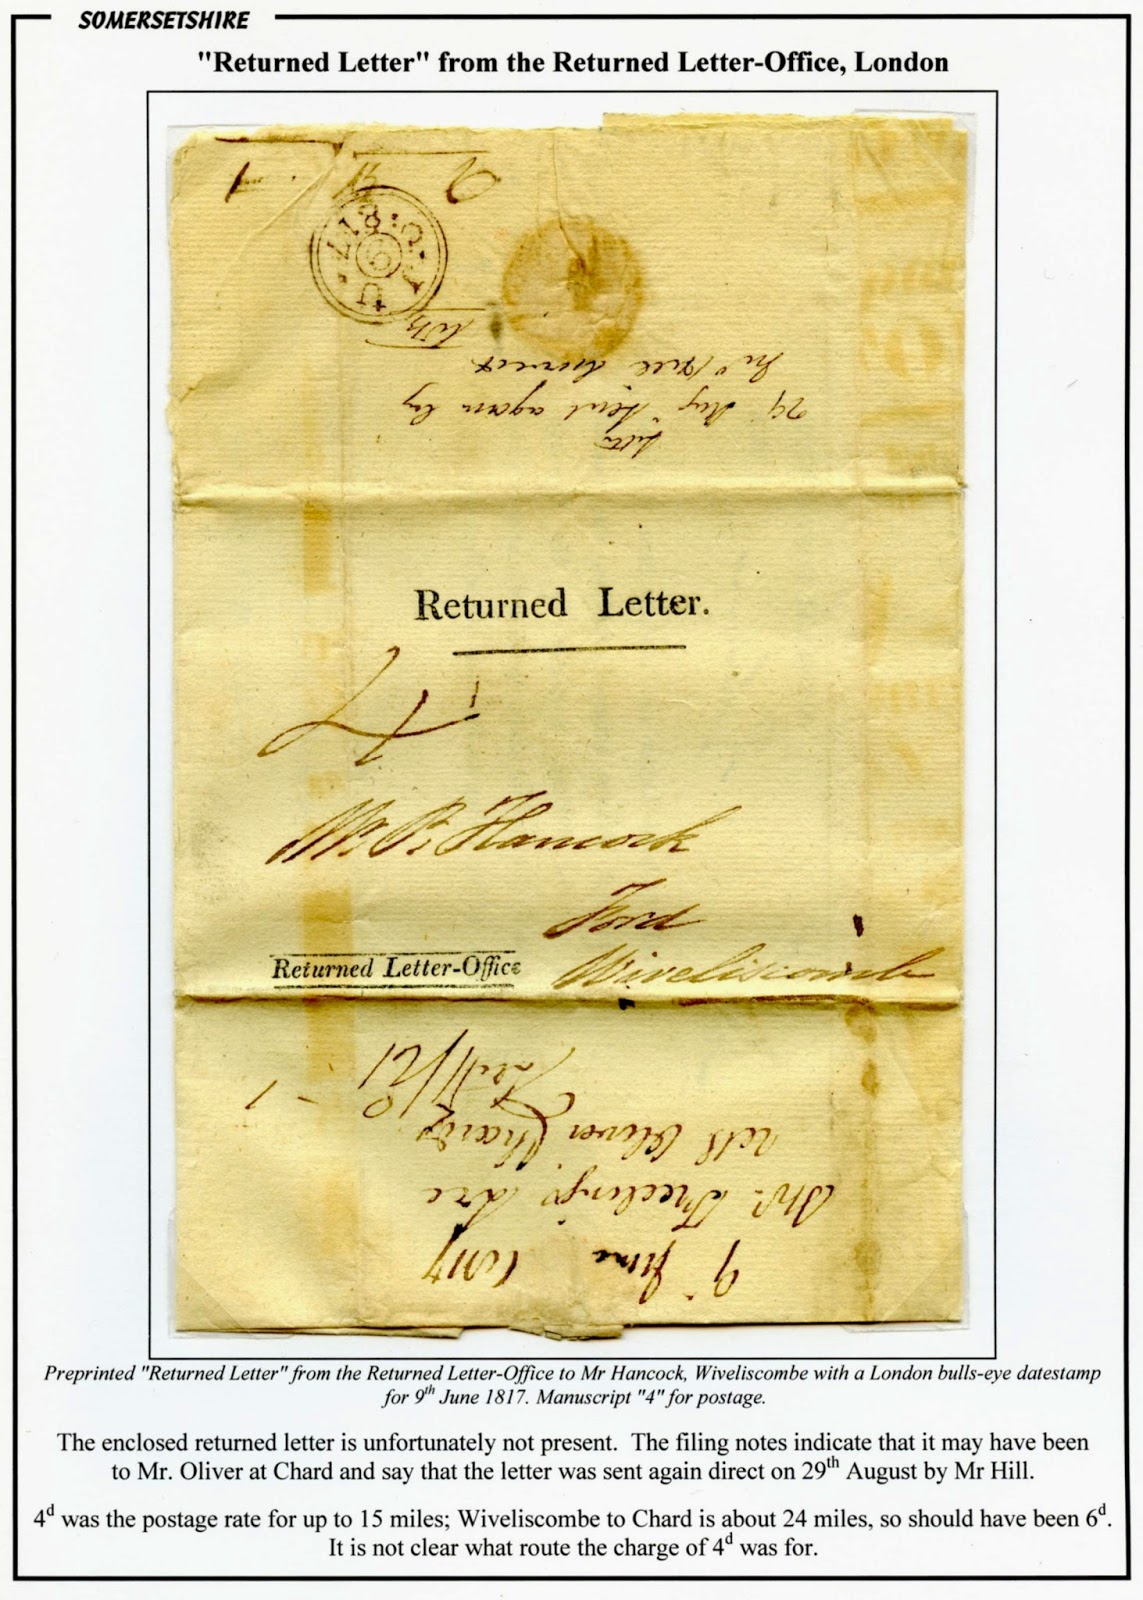 SOMERSETSHIRE
"Returned Letter" from the Returned Letter-Office, London
29 Aug sent again by
Jno Hill
Returned Letter.
Mr. P. Hancock
Ford
Returned Letter-Office
Wiveliscomb
9 June 1817
Freeling
Oliver Chard
Preprinted "Returned Letter" from the Returned Letter-Office to Mr Hancock, Wiveliscombe with a London bulls-eye datestamp
for 9th June 1817. Manuscript "4" for postage.
The enclosed returned letter is unfortunately not present. The filing notes indicate that it may have been
to Mr. Oliver at Chard and say that the letter was sent again direct on 29th August by Mr Hill.
4d was the postage rate for up to 15 miles; Wiveliscombe to Chard is about 24 miles, so should have been 6d.
It is not clear what route the charge of 4d was for.